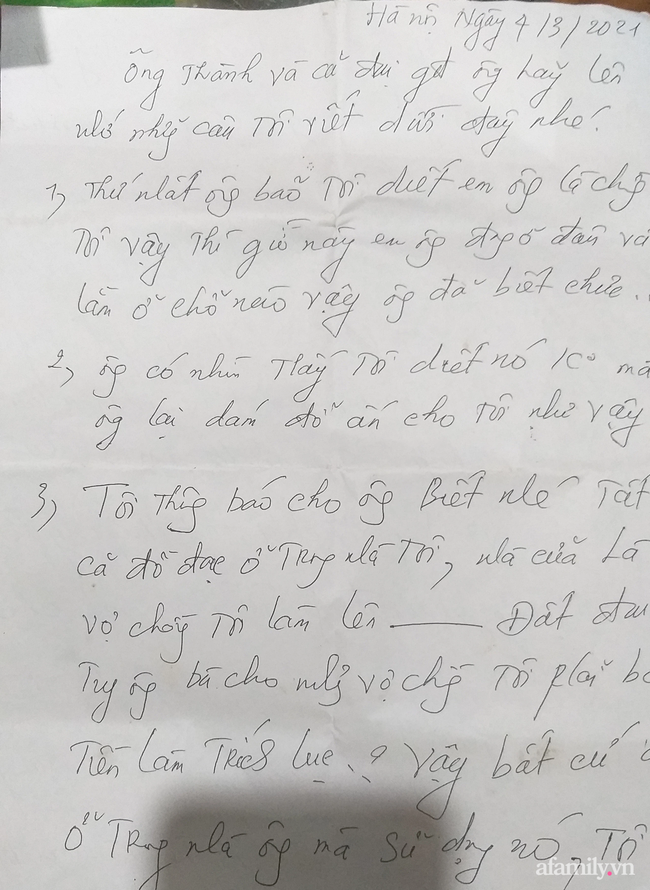 Hà nội Ngày 4/3/2021
Ông Thành và cả đại gđ ôg hãy lên
nhớ nhữg câu Tôi viết dưới đây nhé.
1, Thứ nhất ôg bảo Tôi diết em ôg là chồg
Tôi vậy Thì giờ này em ôg đag ở đâu và
lằm ở chỗ nào vậy ôg đã biết chưa..
2, ôg có nhìn Thấy Tôi diết nó K° mà
ôg lại dám đổ ấn cho Tôi như vậy
3, Tôi Thôg báo cho ôg Biết nhé Tất
cả đồ đạc ở Trog nhà Tôi, nhà cửa Là
vợ chồg Tôi làm lên —— Đất đai
Tuy ôg bà cho nhưg vợ chồg Tôi phải bỏ
Tiền làm Trích lục.? Vậy bất cứ
Ở Trog nhà ôg mà sử dụg nó. Tôi
afamily.vn